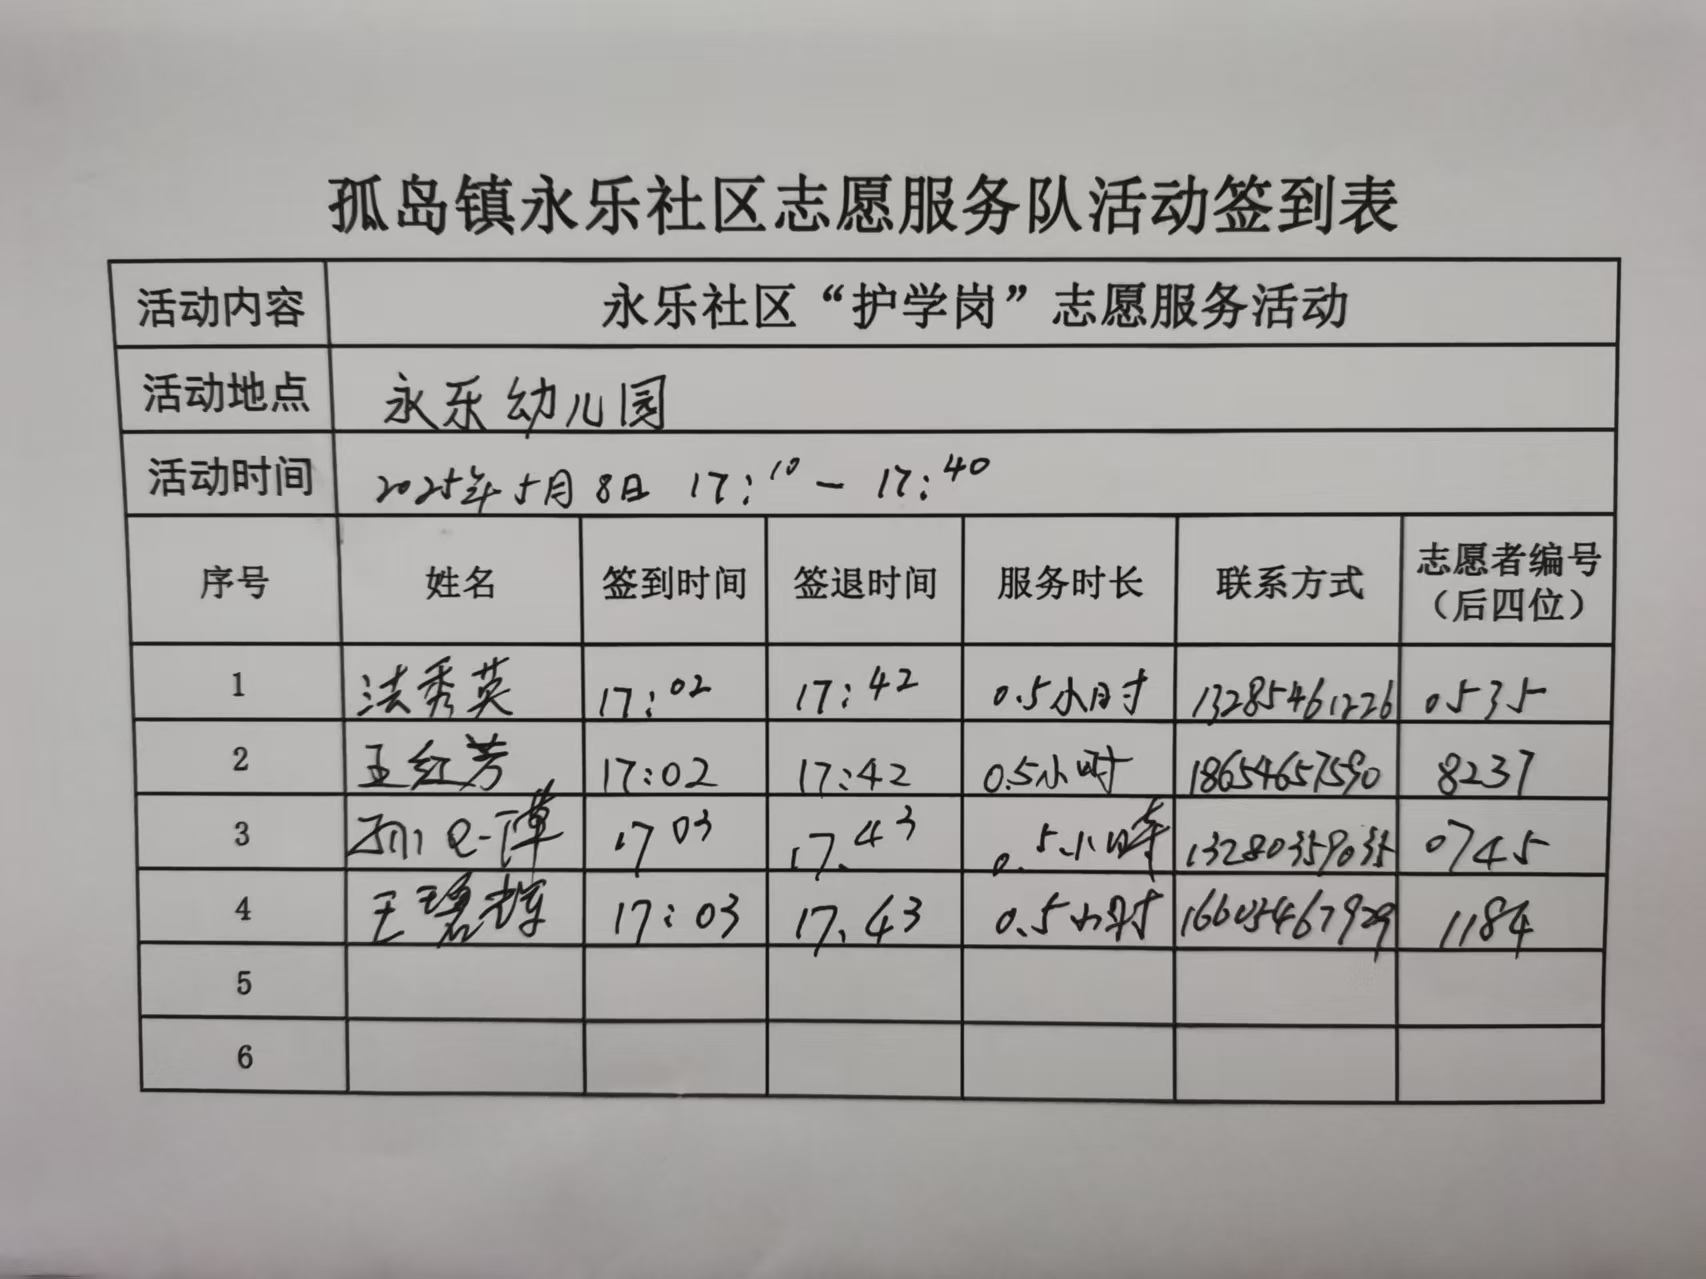 孤岛镇永乐社区志愿服务队活动签到表
活动内容 永乐社区“护学岗”志愿服务活动
活动地点 永乐幼儿园
活动时间 2025年5月8日 17:10-17:40
序号 姓名 签到时间 签退时间 服务时长 联系方式 志愿者编号（后四位）
1 法秀英 17:02 17:42 0.5小时 13285461226 0535
2 王红芳 17:02 17:42 0.5小时 18654657590 8237
3 17 03 17.43 0.5小时 13280359035 0745
4 王碧辉 17:03 17.43 0.5小时 1184
5
6